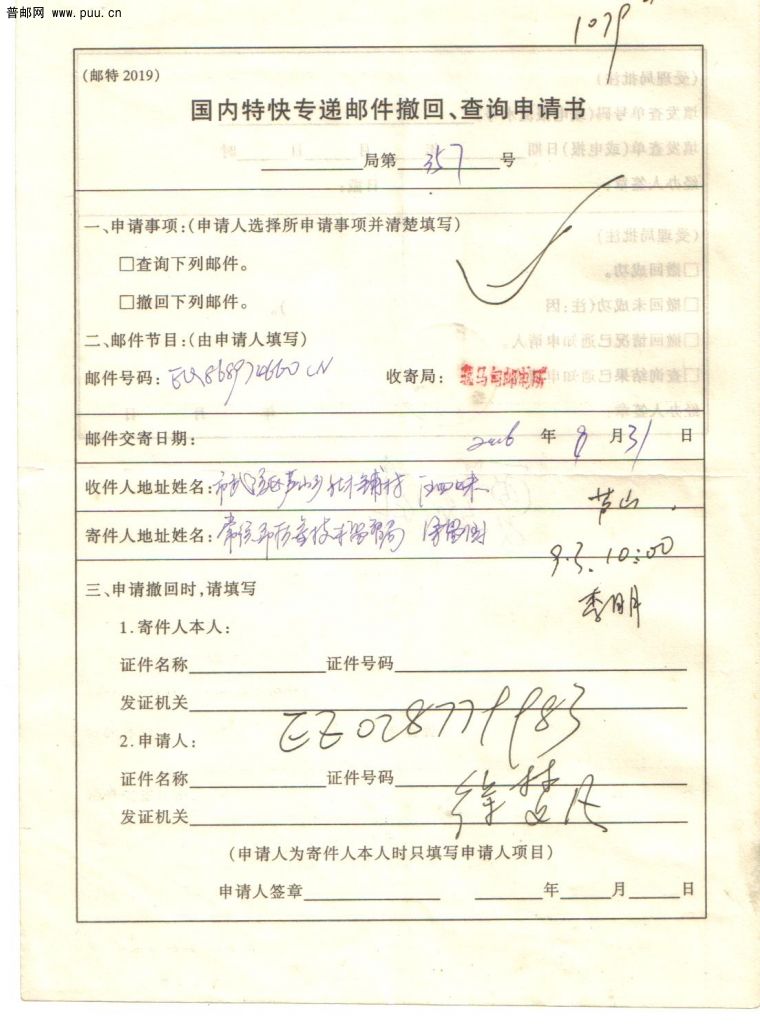 普邮网 www.puu.cn
1079
(邮特 2019)
国内特快专递邮件撤回、查询申请书
局第 357 号
一、申请事项:(申请人选择所申请事项并清楚填写)
□查询下列邮件。
□撤回下列邮件。
二、邮件节目:(由申请人填写)
邮件号码: CN 收寄局:
邮件交寄日期: 2006 年 8 月 31 日
收件人地址姓名:
芦山.
寄件人地址姓名:
9.3. 10:00
李明
三、申请撤回时,请填写
1.寄件人本人:
证件名称 证件号码
发证机关
EZ028779983
2.申请人:
证件名称 证件号码
发证机关
(申请人为寄件人本人时只填写申请人项目)
申请人签章 年 月 日